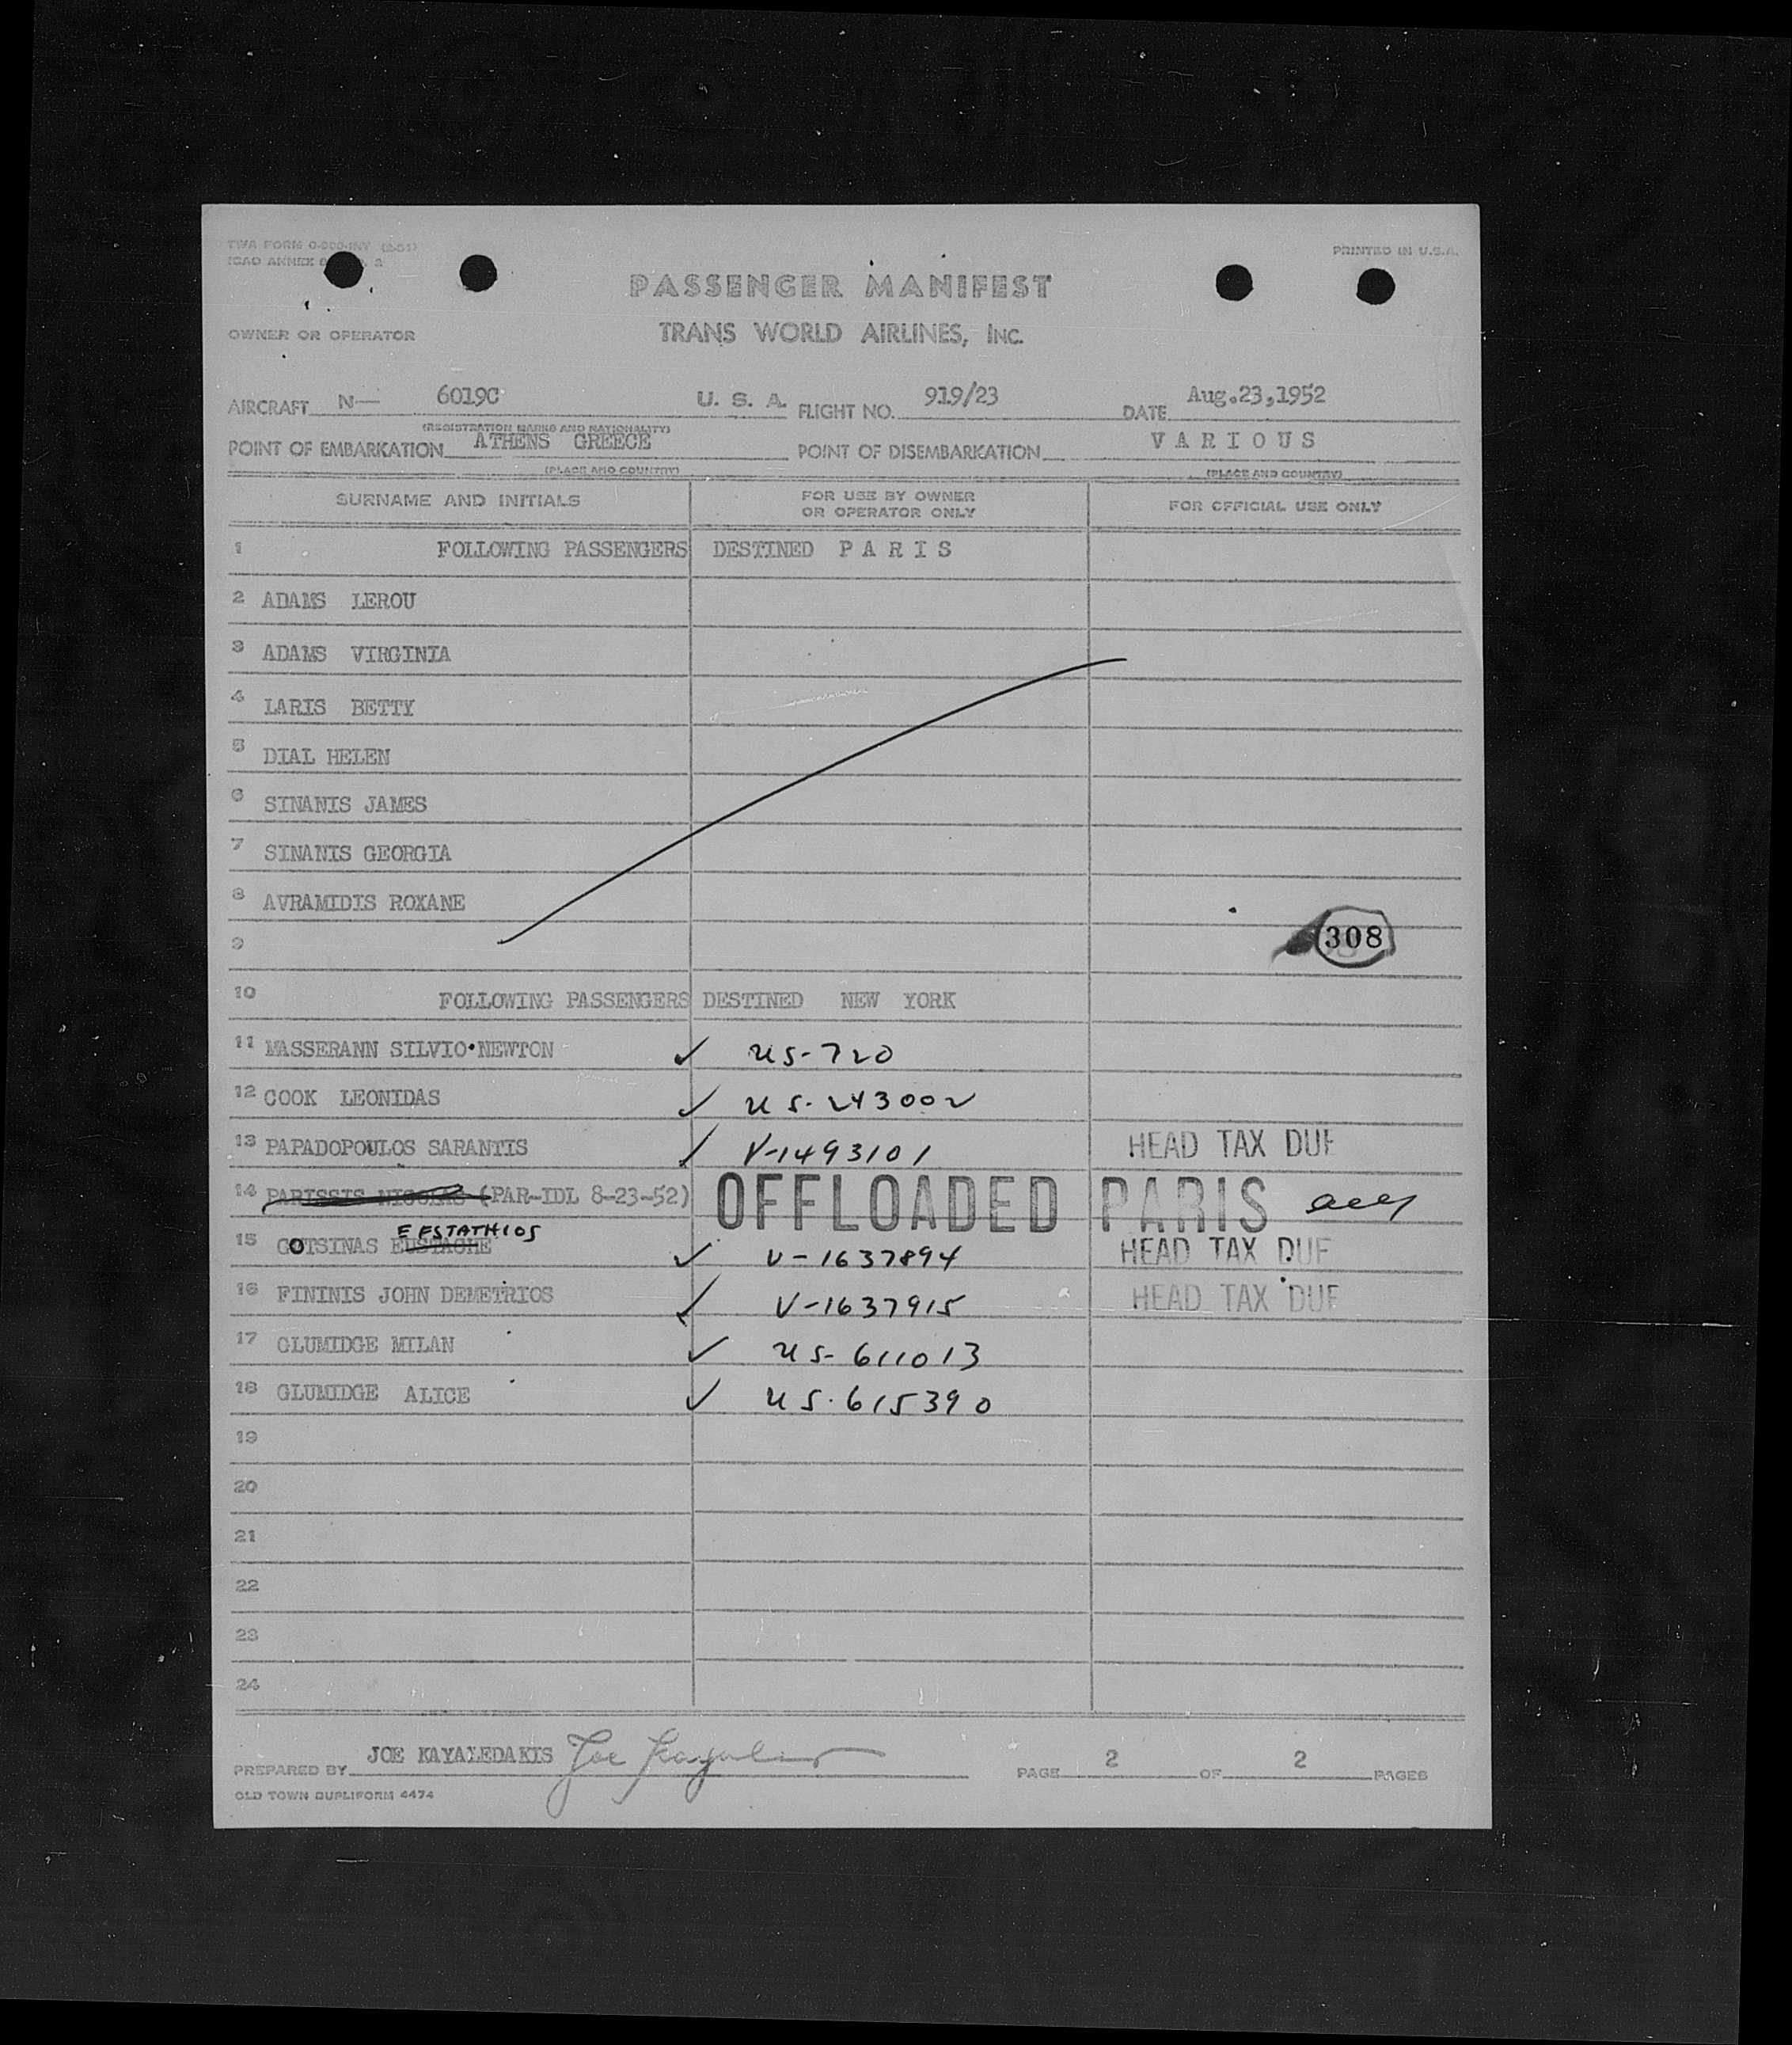 TWA FORM O-200-INT (2-51)
ICAO ANNEX 2
PRINTED IN U.S.A.
PASSENGER MANIFEST
OWNER OR OPERATOR
TRANS WORLD AIRLINES, INC.
AIRCRAFT N— 6019C U. S. A. FLIGHT NO. 919/23 DATE Aug.23,1952
(REGISTRATION MARKS AND NATIONALITY)
POINT OF EMBARKATION ATHENS GREECE POINT OF DISEMBARKATION VARIOUS
(PLACE AND COUNTRY) (PLACE AND COUNTRY)
SURNAME AND INITIALS FOR USE BY OWNER OR OPERATOR ONLY FOR OFFICIAL USE ONLY
1 FOLLOWING PASSENGERS DESTINED PARIS
2 ADAMS LEROU
3 ADAMS VIRGINIA
4 LARIS BETTY
5 DIAL HELEN
6 SINANIS JAMES
7 SINANIS GEORGIA
8 AVRAMIDIS ROXANE
9 308
10 FOLLOWING PASSENGERS DESTINED NEW YORK
11 MASSERANN SILVIO NEWTON ✓ US-720
12 COOK LEONIDAS ✓ US-243002
13 PAPADOPOULOS SARANTIS ✓ V-1493101 HEAD TAX DUE
14 PARISSIS NICOLAS (PAR-IDL 8-23-52) OFFLOADED PARIS
EFSTATHIOS
15 COTSINAS EUSTACHE ✓ V-1637894 HEAD TAX DUE
16 FININIS JOHN DEMETRIOS ✓ V-1637915 HEAD TAX DUE
17 GLUMIDGE MILAN ✓ US-611013
18 GLUMIDGE ALICE ✓ US-615390
19
20
21
22
23
24
PREPARED BY JOE KAYALEDAKIS PAGE 2 OF 2 PAGES
OLD TOWN DUPLIFORM 4474